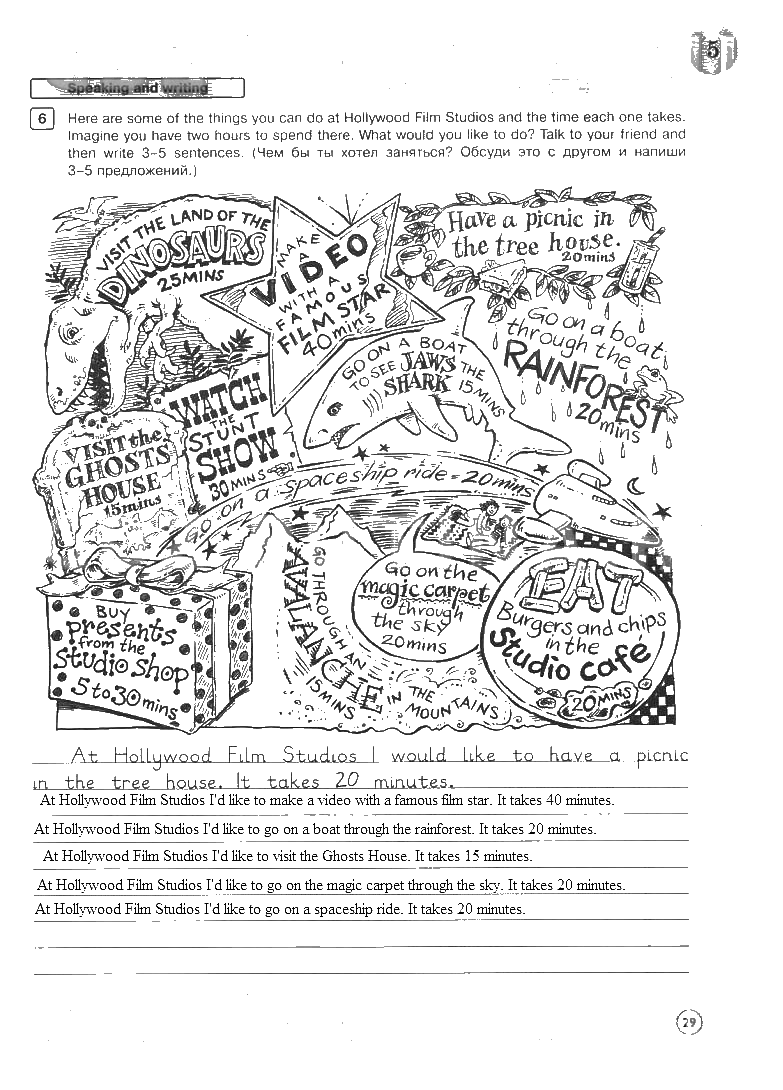 5
Speaking and writing
6
Here are some of the things you can do at Hollywood Film Studios and the time each one takes.
Imagine you have two hours to spend there. What would you like to do? Talk to your friend and
then write 3–5 sentences. (Чем бы ты хотел заняться? Обсуди это с другом и напиши
3–5 предложений.)
VISIT THE LAND OF THE
DINOSAURS
25 MINS
MAKE
A
VIDEO
WITH A
FAMOUS
FILM STAR
40 mins
Have a picnic in
the tree house.
20 mins
GO ON A BOAT
TO SEE JAWS THE
SHARK 15 MINS
Go on a boat
through the
RAINFOREST
20 mins
WATCH
THE
STUNT
SHOW.
30 MINS
VISIT the
GHOSTS
HOUSE
15 mins
Go on a spaceship ride - 20 mins
BUY
presents
from the
Studio Shop
5 to 30 mins
GO THROUGH AN
AVALANCHE
IN THE
MOUNTAINS
15 MINS
Go on the
magic carpet
through
the sky
20 mins
EAT
Burgers and chips
in the
Studio café
20 MINS
At Hollywood Film Studios I would like to have a picnic
in the tree house. It takes 20 minutes.
At Hollywood Film Studios I'd like to make a video with a famous film star. It takes 40 minutes.
At Hollywood Film Studios I'd like to go on a boat through the rainforest. It takes 20 minutes.
At Hollywood Film Studios I'd like to visit the Ghosts House. It takes 15 minutes.
At Hollywood Film Studios I'd like to go on the magic carpet through the sky. It takes 20 minutes.
At Hollywood Film Studios I'd like to go on a spaceship ride. It takes 20 minutes.
29